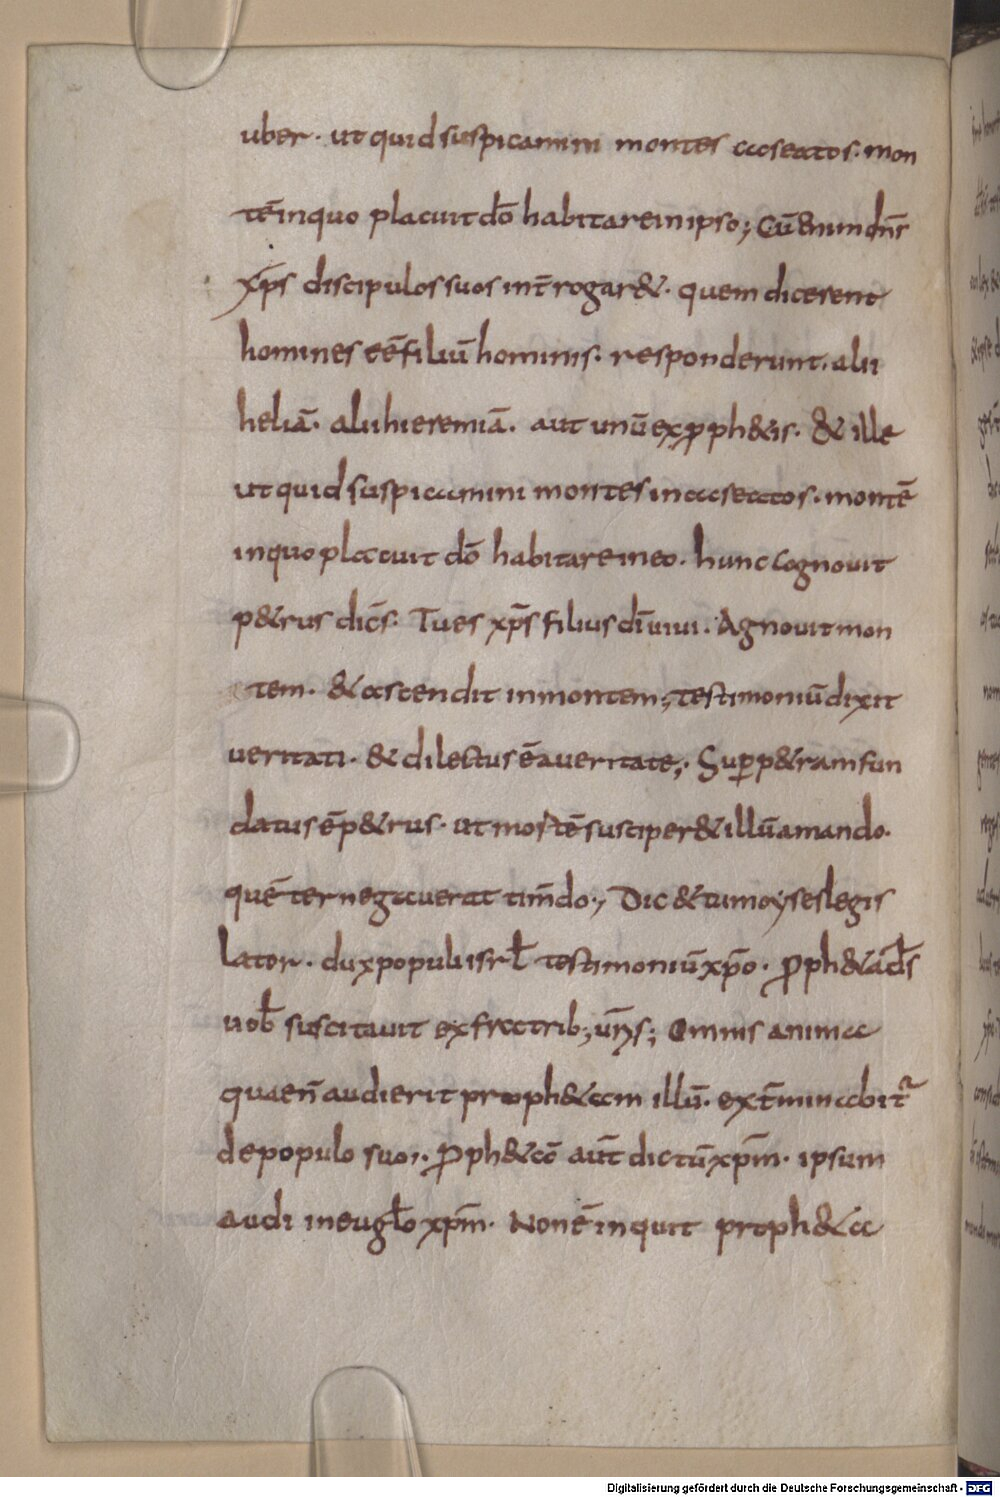 uber · ut quid suspicamini montes caseatos · mon
tē in quo placuit dō habitare in ipso; Cū & enim dn̄s
xp̄s discipulos suos int̄rogar& · quem dicerent
homines eē filiū hominis · responderunt · alii
heliā · alii hieremiā · aut unū ex proph&is · & ille
ut quid suspicamini montes incaseatos · montē
in quo placuit dō habitare in eo · hunc cognovit
p&rus dicēs · Tu es xp̄s filius dī vivi · Agnovit mon
tem · & ascendit in montem; testimoniū dixit
veritati · & dilectus ē a veritate; Sup p&ram fun
datus ē p&rus · ut mortē susciper& illū amando ·
quē ter negaverat tim̄do; Dic & tu moyses legis
lator · dux populi isrł testimoniū xp̄o · Proph&ā d̄s
vob̄ suscitavit ex fratrib; vr̄ı̄s; Omnis anima
quae n̄ audierit proph&am illū · ext̄minabit^r
de populo suo · Proph&ā aūt dictū xp̄m · ipsum
audi in eugłō xp̄m · Non ē inquit proph&a
Digitalisierung gefördert durch die Deutsche Forschungsgemeinschaft - DFG